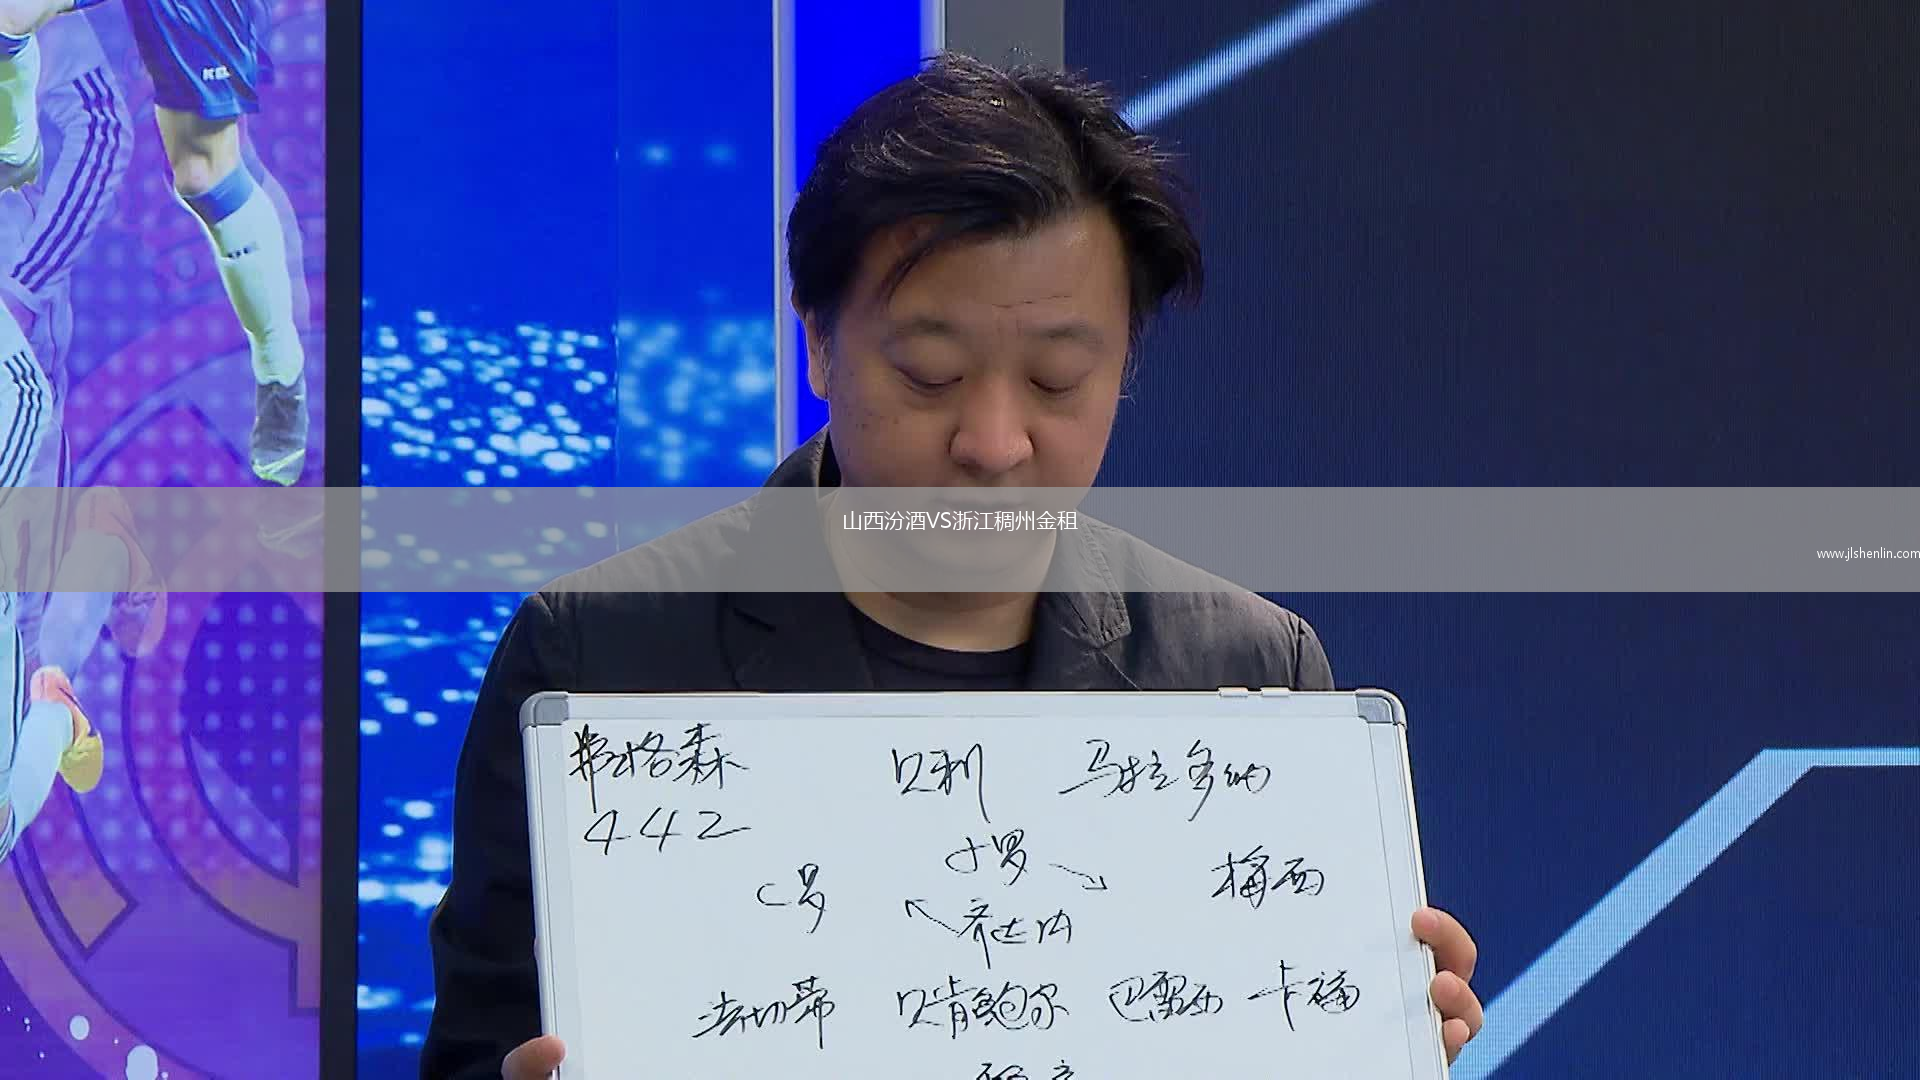 KE
山西汾酒VS浙江稠州金租
www.jlshenlin.com
弗格森 贝利 马拉多纳
442
小罗
C罗 梅西
齐达内
法切蒂 贝肯鲍尔 巴雷西 卡福